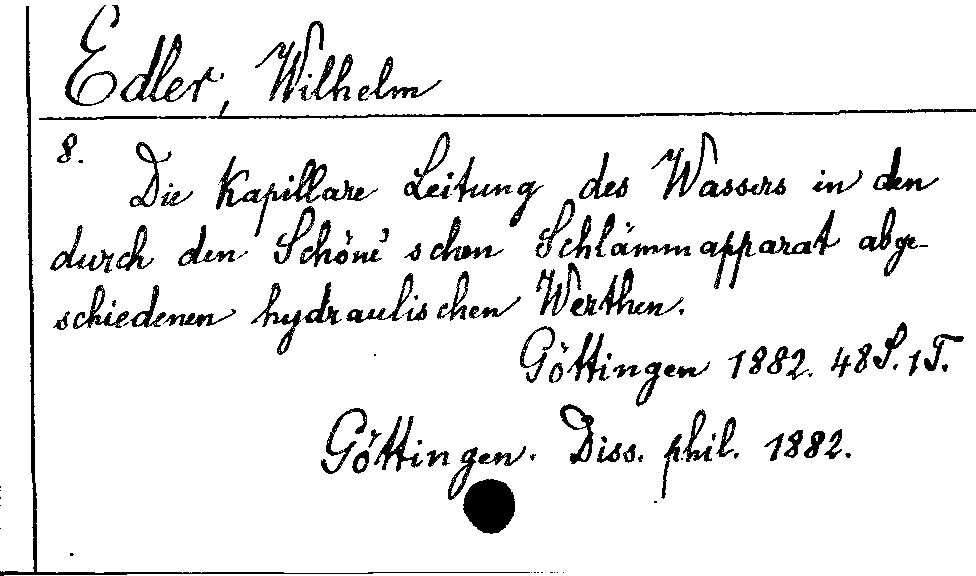 Edler, Wilhelm
8.
Die kapillare Leitung des Wassers in den
durch den Schöne'schen Schlämmapparat abge-
schiedenen hydraulischen Werthen.
Göttingen 1882. 48 S. 1 T.
Göttingen. Diss. phil. 1882.